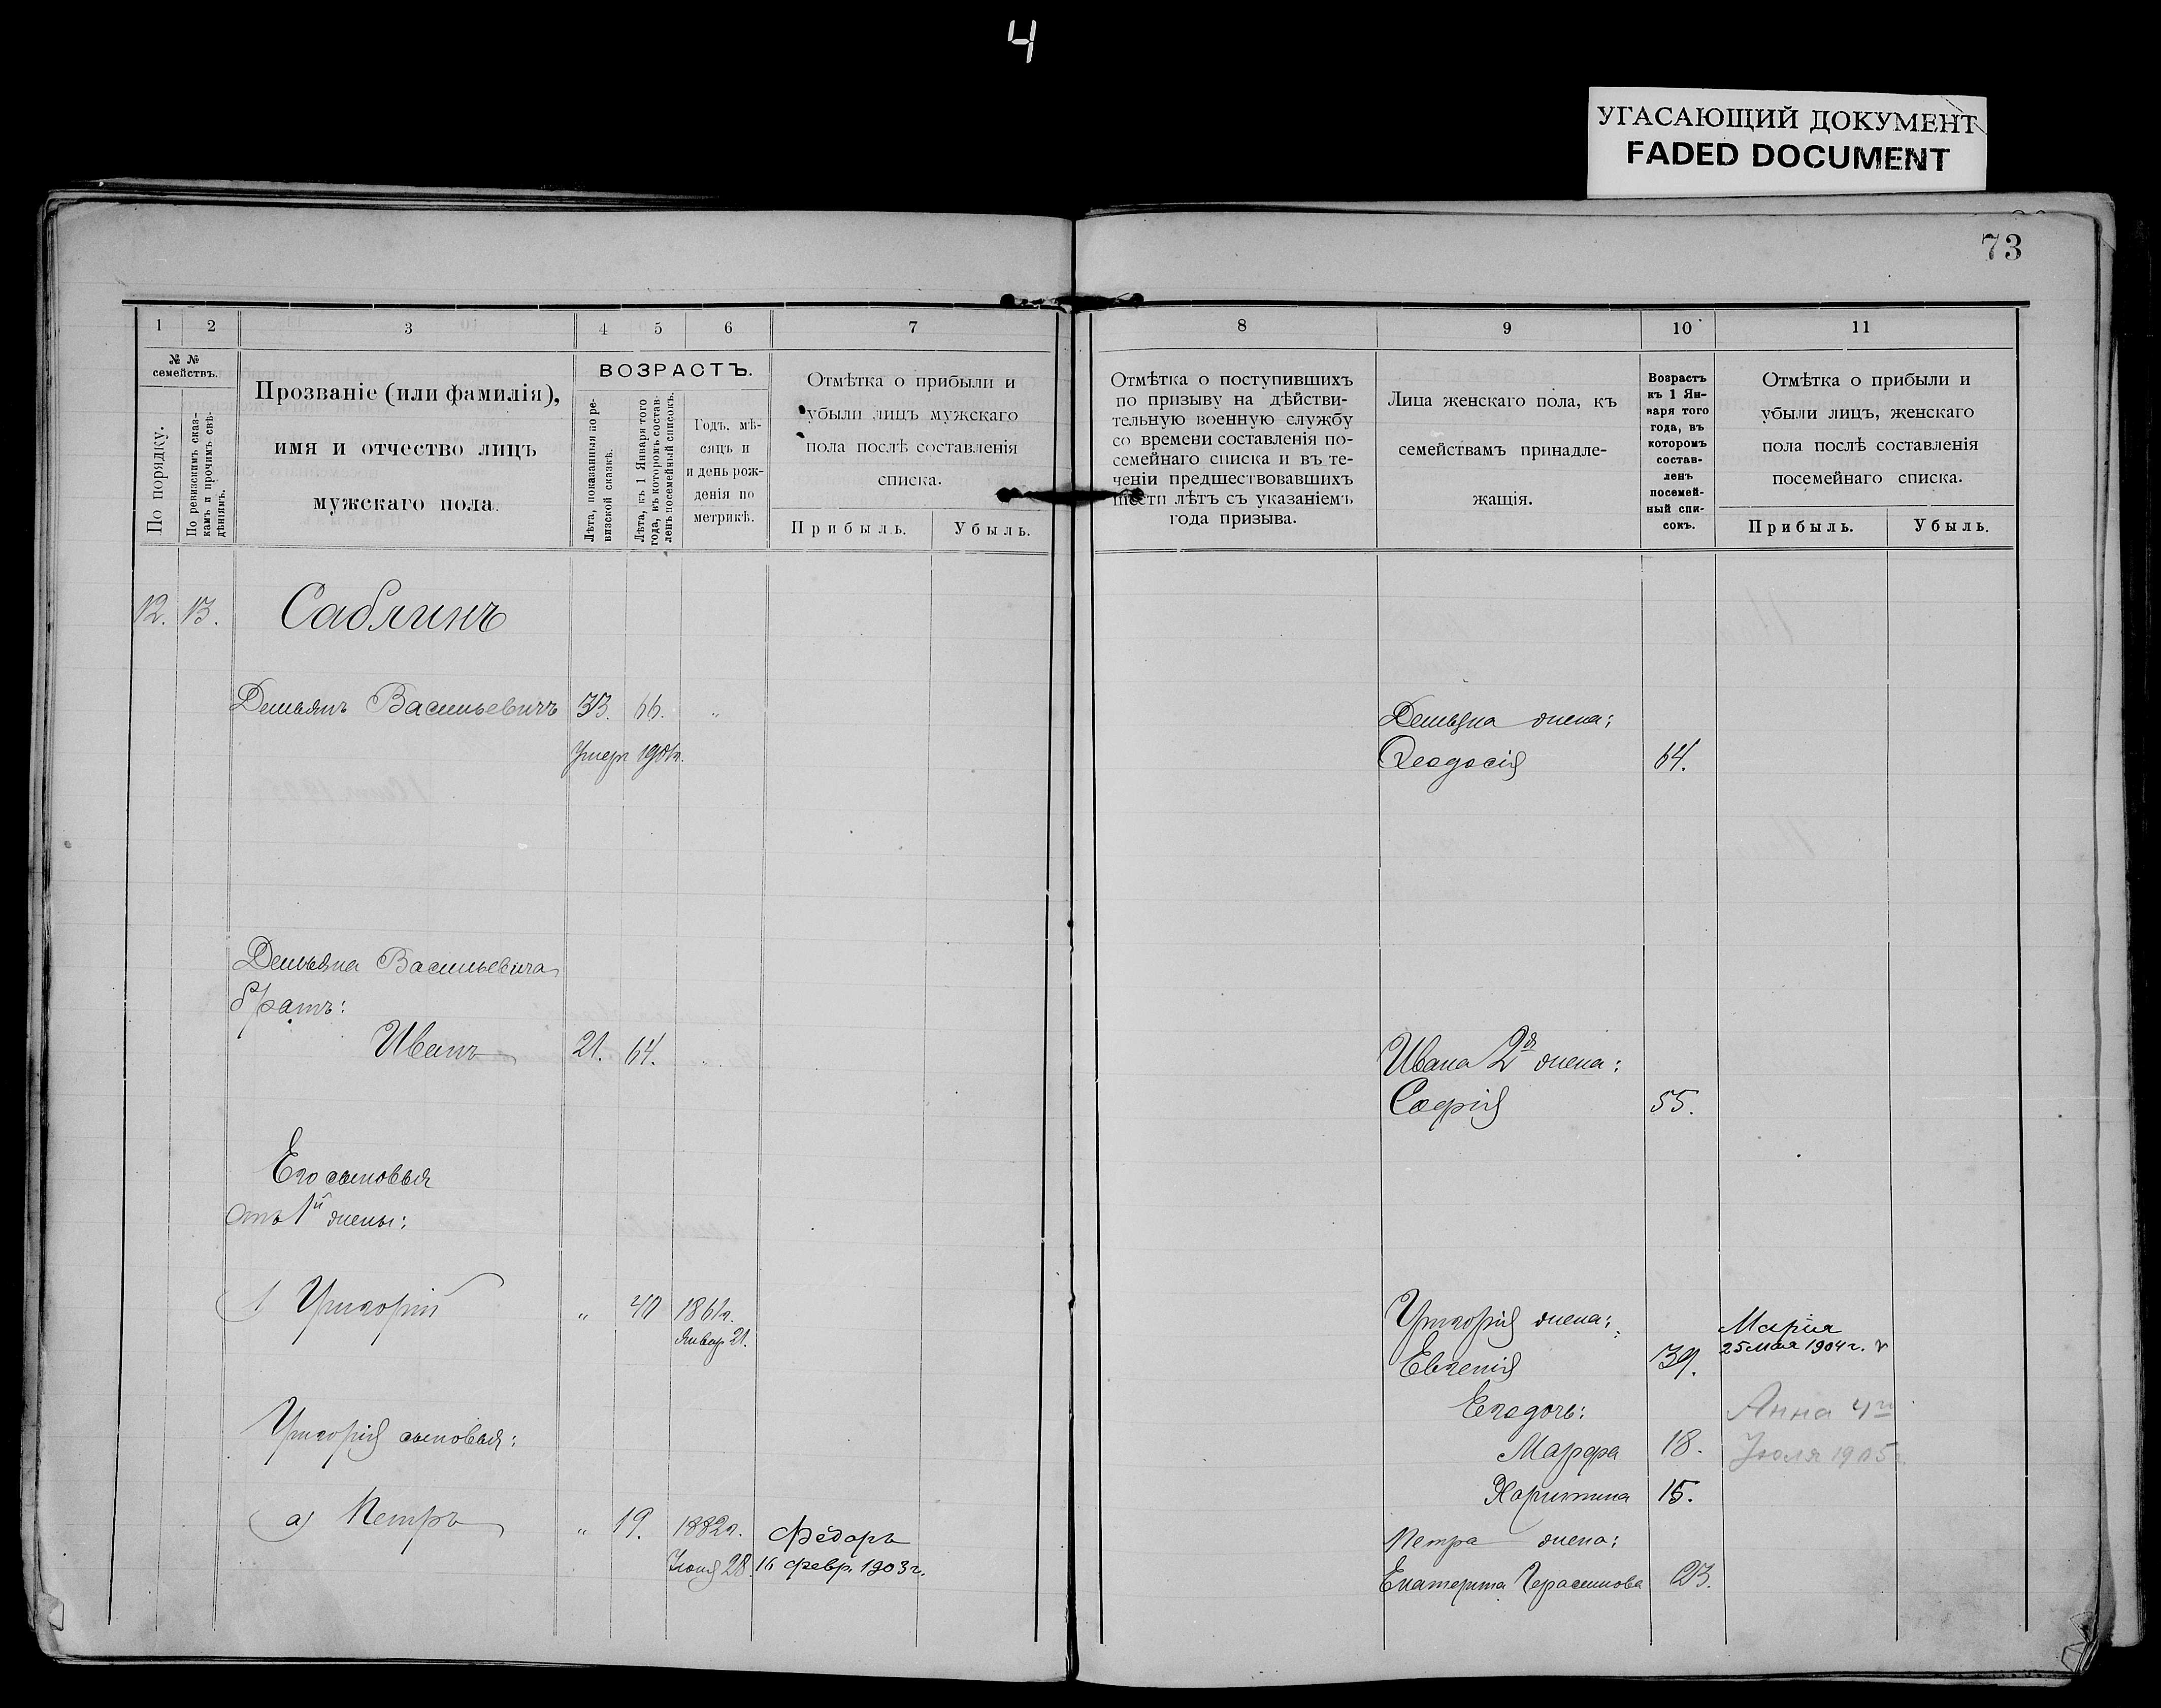 4
УГАСАЮЩИЙ ДОКУМЕНТ
FADED DOCUMENT
73
1 2 3 4 5 6 7
№ №
семействъ.
По порядку.
По ревизскимъ сказ-
камъ и прочимъ свѣ-
дѣніямъ.
Прозваніе (или фамилія),
имя и отчество лицъ
мужскаго пола.
ВОЗРАСТЪ.
Лѣта, показанныя по ре-
визской сказкѣ.
Лѣта, къ 1 Января того
года, въ которомъ состав-
ленъ посемейный списокъ.
Годъ, мѣ-
сяцъ и
и день рож-
денія по
метрикѣ.
Отмѣтка о прибыли и
убыли лицъ мужскаго
пола послѣ составленія
списка.
Прибыль. Убыль.
12. 13. Саблинъ
Демьянъ Васильевичъ 33. 66. „
Умеръ 1901г.
Демьяна Васильевича
братъ:
Иванъ 21. 64.
Его сыновья
отъ 1й жены:
1 Григорій „ 40 1861г.
Январ. 21.
Григорія сыновья:
а) Петръ „ 19. 1882г. Федоръ
Іюня 28. 16 февр. 1903г.
8 9 10 11
Отмѣтка о поступившихъ
по призыву на дѣйстви-
тельную военную службу
со времени составленія по-
семейнаго списка и въ те-
ченіи предшествовавшихъ
шести лѣтъ съ указаніемъ
года призыва.
Лица женскаго пола, къ
семействамъ принадле-
жащія.
Возрастъ
къ 1 Ян-
варя того
года, въ
которомъ
состав-
ленъ
посемей-
ный спи-
сокъ.
Отмѣтка о прибыли и
убыли лицъ, женскаго
пола послѣ составленія
посемейнаго списка.
Прибыль. Убыль.
Демьяна жена:
Ѳеодосія 64.
Ивана 2я жена:
Софія 55.
Григорія жена:
Евгенія 39.
Марія
25 мая 1904г.
Его дочь:
Марфа 18.
Анна 4го
Іюля 1905г.
Харитина 15.
Петра жена:
Екатерина Герасимова 23.